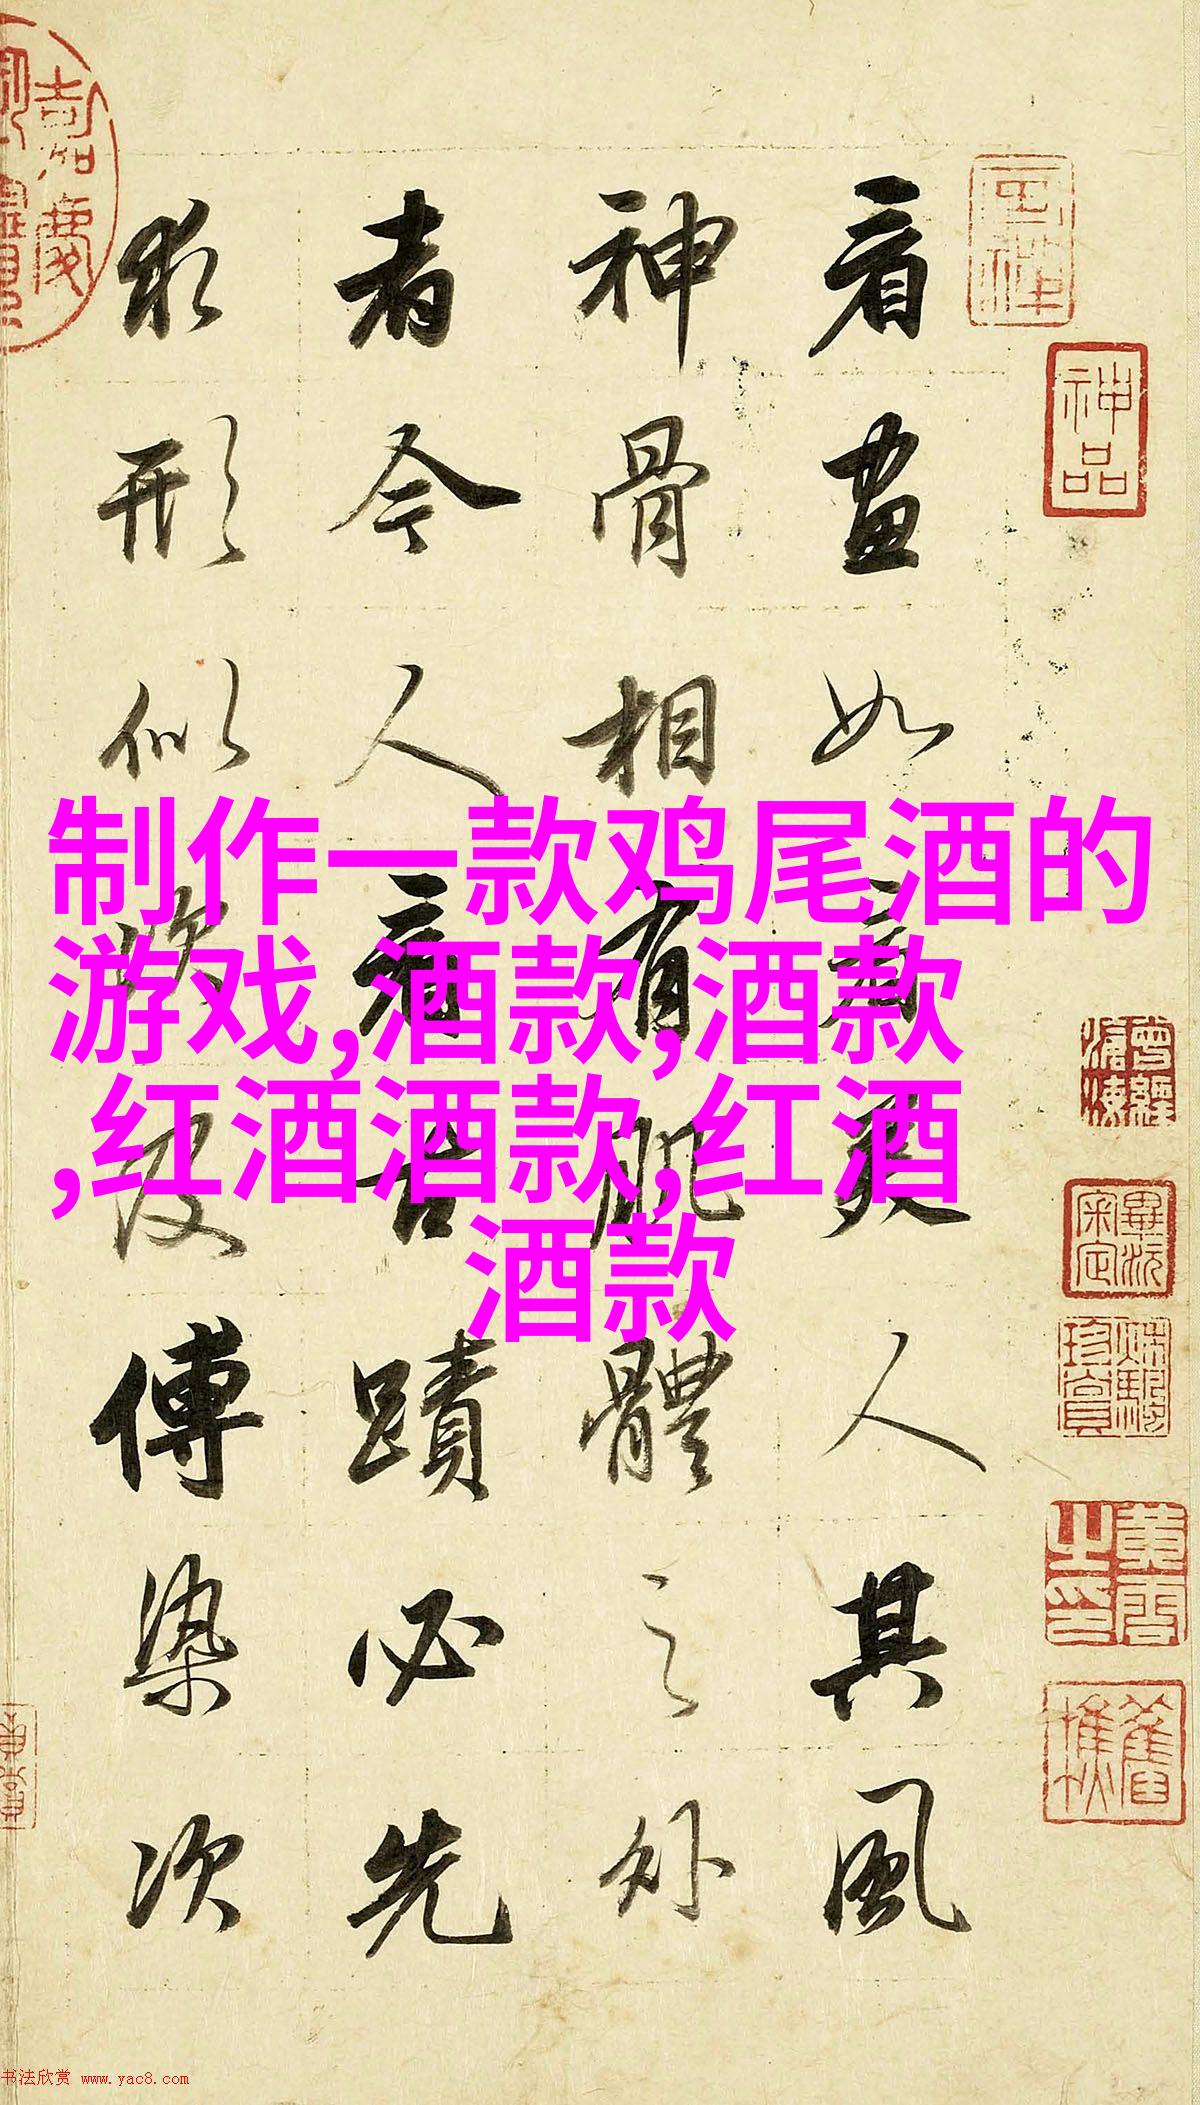 制作一款鸡尾酒的
游戏,酒款,酒款
,红酒酒款,红酒
酒款
看画如看美人其風
神骨相有肌體之外
者今人看古蹟必先
求形似次及傅染次
神品
嘉慶
书法欣赏 www.yac8.com